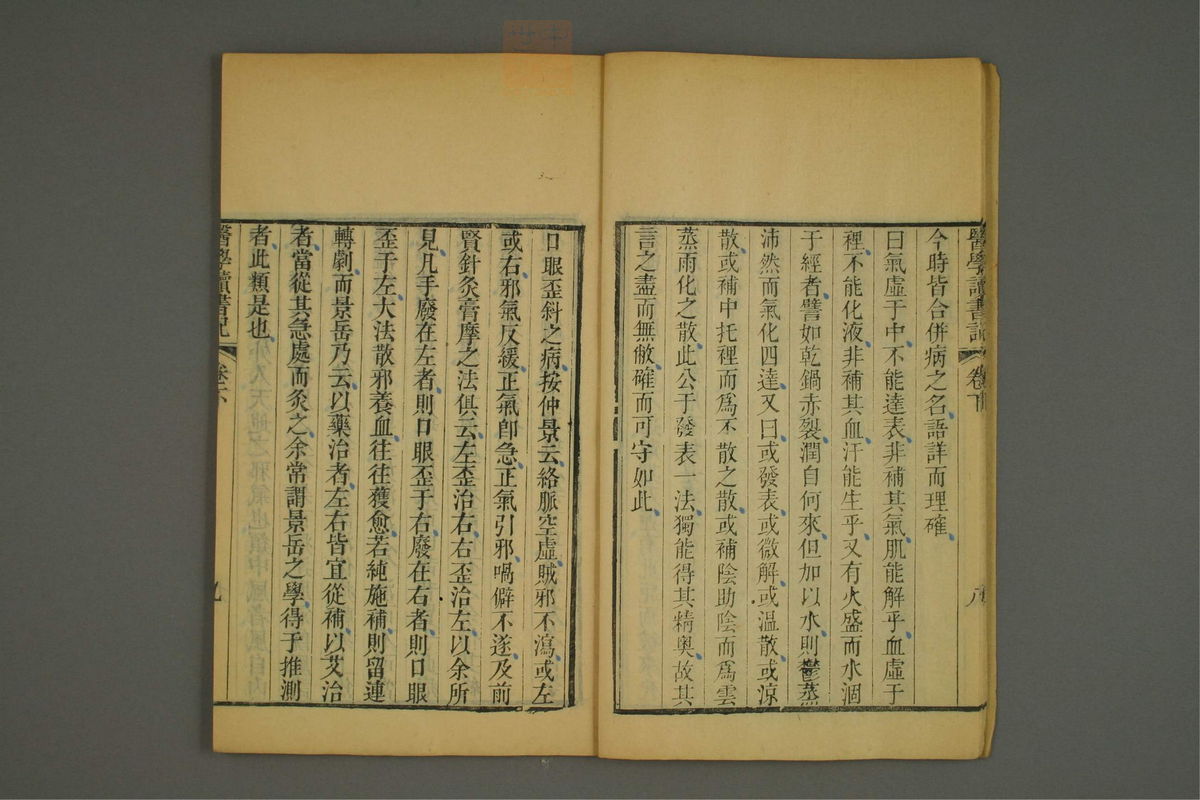 醫學讀書記
卷下
八
今時皆合併病之名語詳而理確
曰氣虛于中不能達表非補其氣肌能解乎血虛于
裡不能化液非補其血汗能生乎又有火盛而水涸
于經者譬如乾鍋赤裂潤自何來但加以水則鬱蒸
沛然而氣化四達又曰或發表或微解或温散或涼
散或補中托裡而爲不散之散或補陰助陰而爲雲
蒸雨化之散此公于發表一法獨能得其精奧故其
言之盡而無敝確而可守如此
口眼歪斜之病按仲景云絡脈空虛賊邪不瀉或左
或右邪氣反緩正氣卽急正氣引邪喎僻不遂及前
賢針灸膏摩之法俱云左歪治右右歪治左以余所
見凡手廢在左者則口眼歪于右廢在右者則口眼
歪于左大法散邪養血往往獲愈若純施補則留連
轉劇而景岳乃云以藥治者左右皆宜從補以艾治
者當從其急處而灸之余常謂景岳之學得于推測
者此類是也
醫學讀書記
九